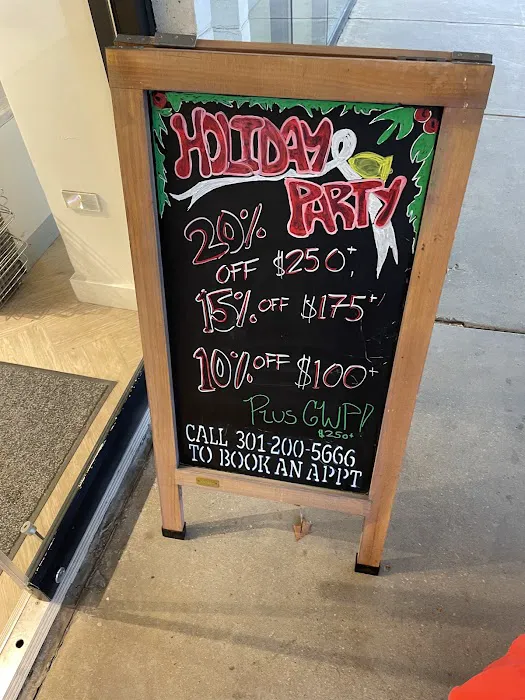 HOLIDAY
PARTY
20%
OFF $250+
15% OFF $175+
10% OFF $100+
PLUS GWP!
$250+
CALL 301-200-5666
TO BOOK AN APPT